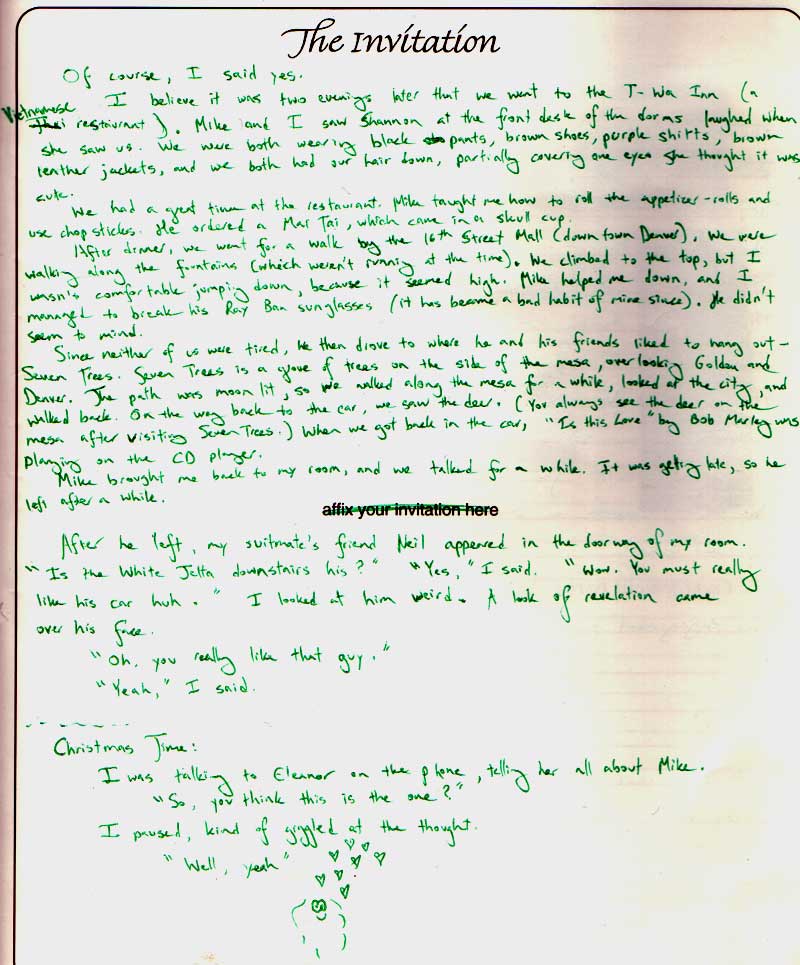 The Invitation
Of course, I said yes.
I believe it was two evenings later that we went to the T-Wa Inn (a
Vietnamese restaurant). Mike and I saw Shannon at the front desk of the dorms laughed when
she saw us. We were both wearing black pants, brown shoes, purple shirts, brown
leather jackets, and we both had our hair down, partially covering one eye. She thought it was
cute.
We had a great time at the restaurant. Mike taught me how to roll the appetizer-rolls and
use chop sticks. He ordered a Mai Tai, which came in a skull cup.
After dinner, we went for a walk by the 16th Street Mall (downtown Denver). We were
walking along the fountains (which weren't running at the time). We climbed to the top, but I
wasn's comfortable jumping down, because it seemed high. Mike helped me down, and I
managed to break his Ray Ban sunglasses (it has became a bad habit of mine since). He didn't
seem to mind.
Since neither of us were tired, he then drove to where he and his friends liked to hang out-
Seven Trees. Seven Trees is a grove of trees on the side of the mesa, overlooking Golden and
Denver. The path was moon lit, so we walked along the mesa for a while, looked at the city, and
walked back. On the way back to the car, we saw the deer. (You always see the deer on the
mesa after visiting Seven Trees.) When we got back in the car, "Is this Love" by Bob Marley was
playing on the CD player.
Mike brought me back to my room, and we talked for a while. It was geting late, so he
left after a while.
affix your invitation here
After he left, my suitmate's friend Neil appeared in the doorway of my room.
"Is the White Jetta downstairs his?" "Yes," I said. "Wow. You must really
like his car huh." I looked at him weird. A look of revelation came
over his face.
"Oh, you really like that guy."
"Yeah," I said.
Christmas Time:
I was talking to Eleanor on the phone, telling her all about Mike.
"So, you think this is the one?"
I paused, kind of giggled at the thought.
"Well, yeah"